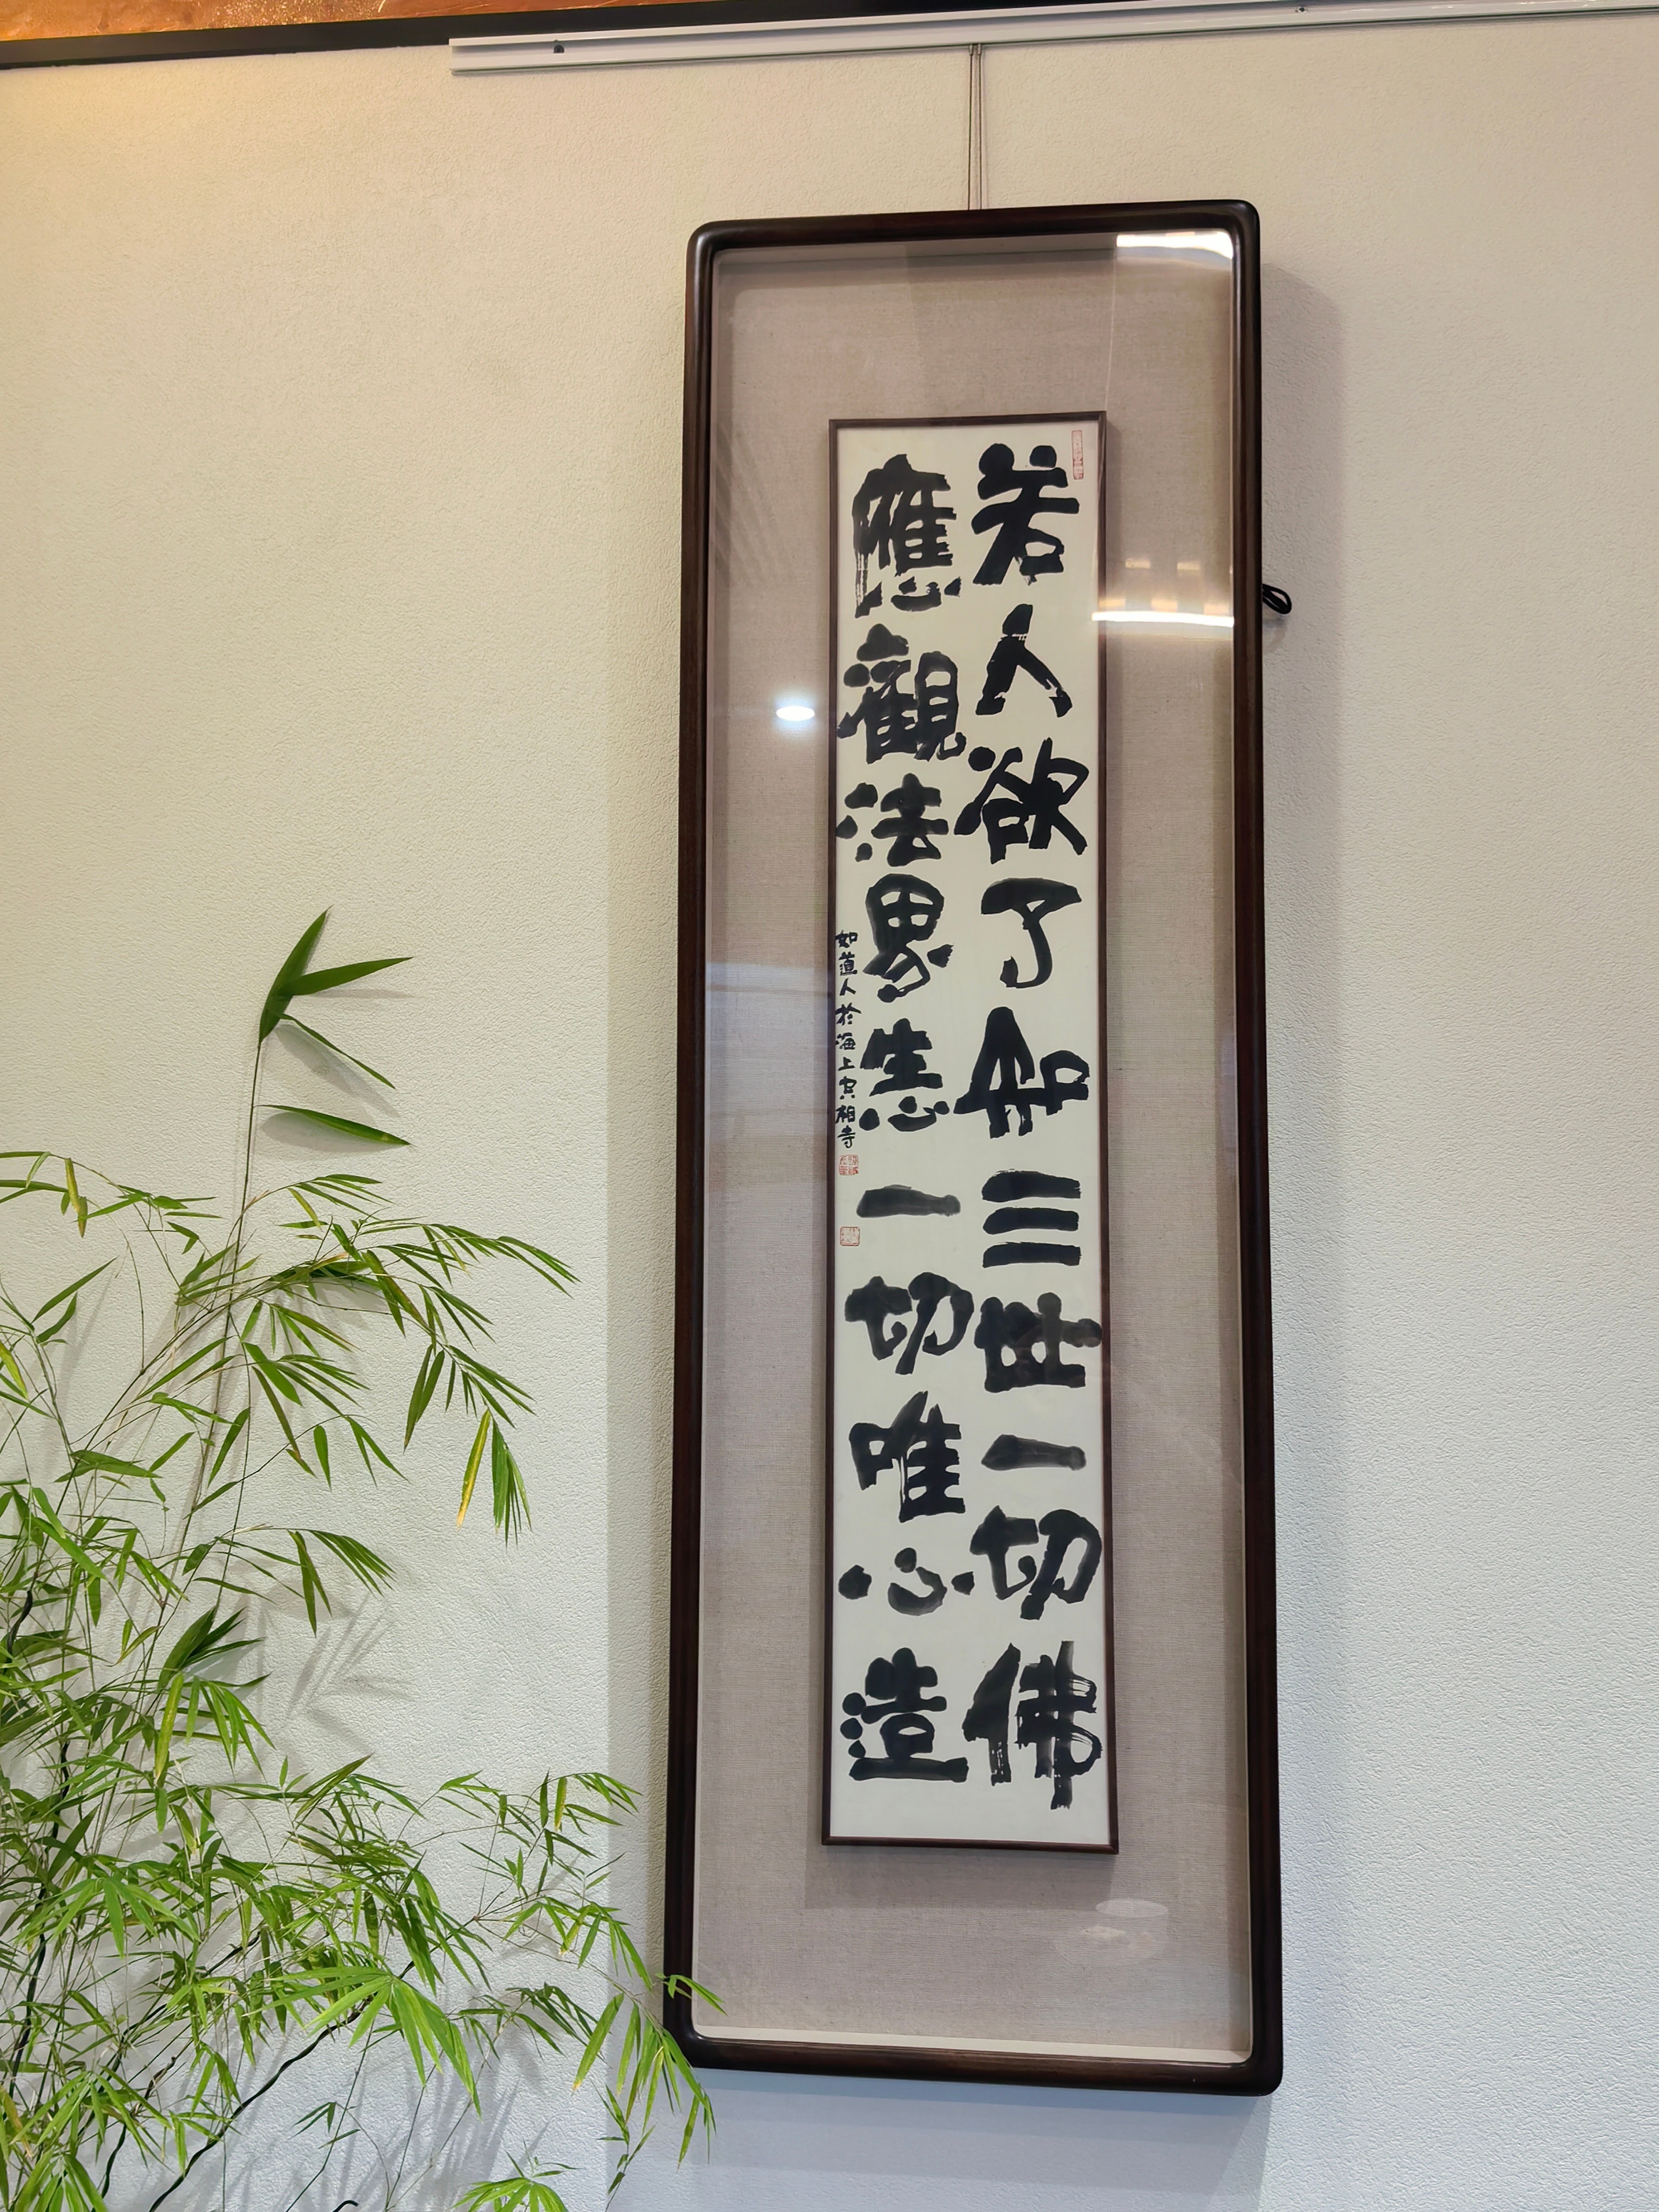 若人欲了知三世一切佛
應觀法界性一切唯心造
如道人於海上相寺